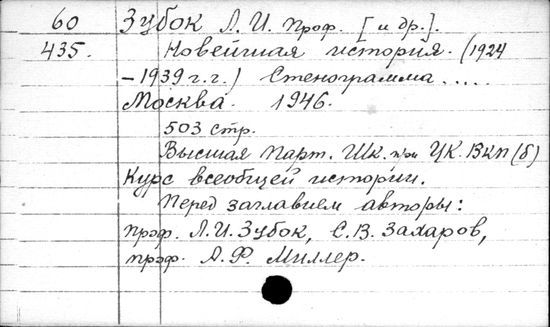 60 Зубок Л. И. проф. [и др.].
435. Новейшая история. (1924
–1939 г.г.) Стенограмма.....
Москва. 1946.
503 стр.
Высшая Парт. Шк. при ЦК. ВКП(б)
Курс всеобщей истории.
Перед заглавием авторы:
проф. Л.И. Зубок, С.В. Захаров,
проф. А.Ф. Миллер.